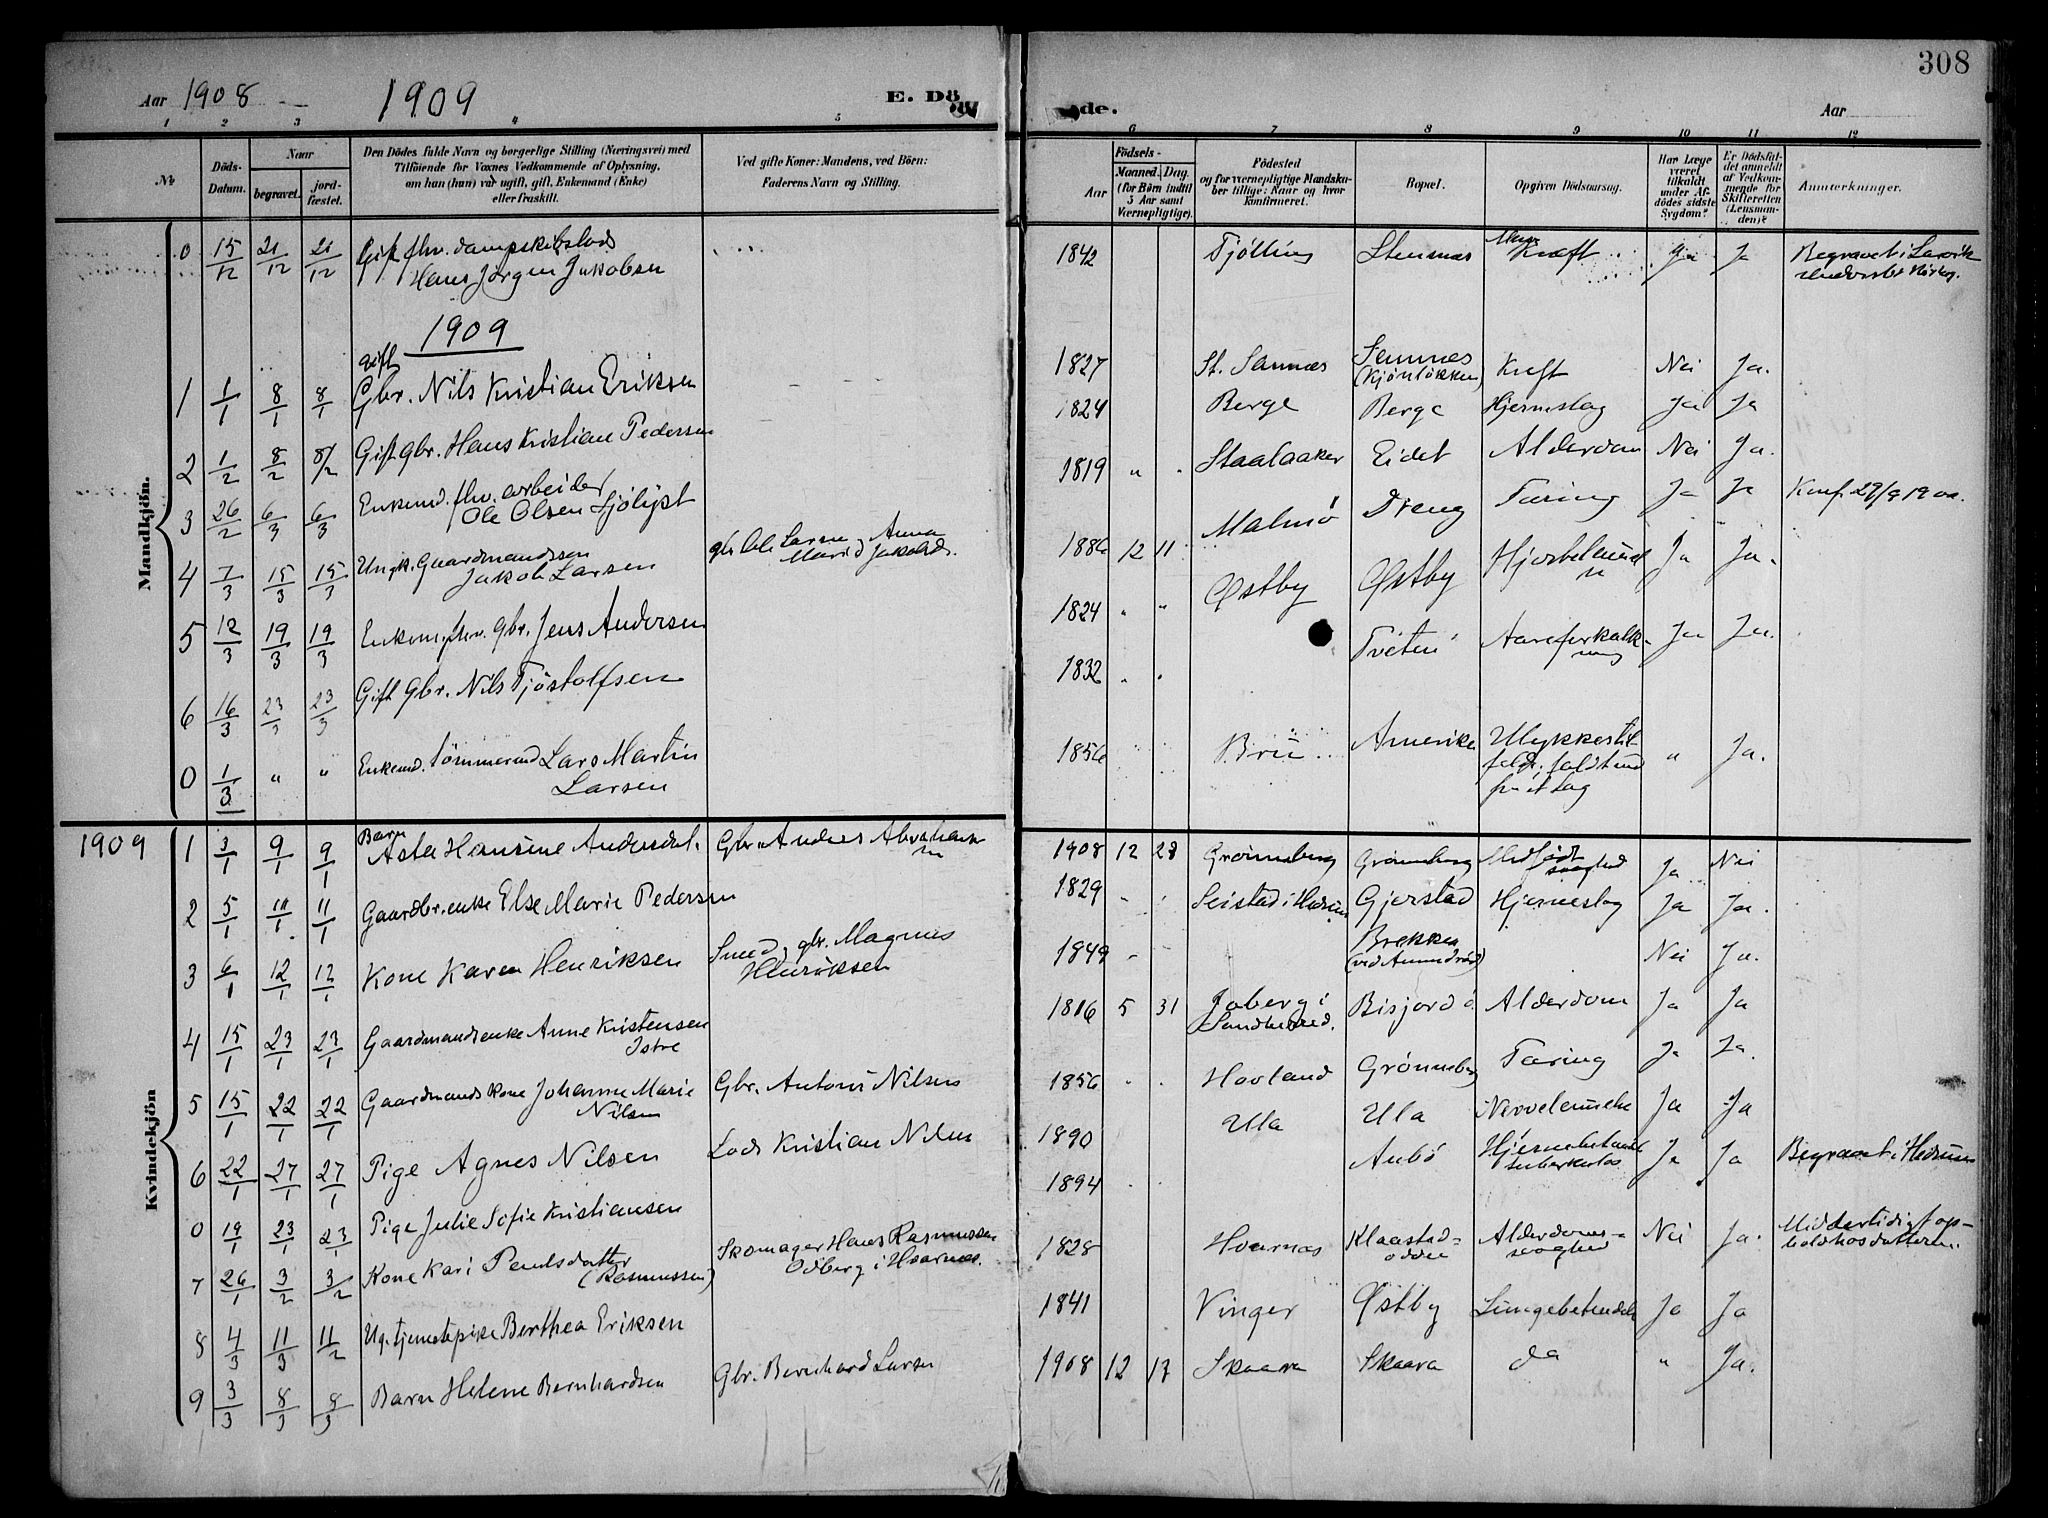 308
Aar 1908 1909 E. Döde. Aar
1 2 3 4 5 6 7 8 9 10 11 12
No
Döds-Datum.
Naar
begravet.
jord-fæstet.
Den Dödes fulde Navn og borgerlige Stilling (Næringsvei) med
Tilföiende for Voxnes Vedkommende af Oplysning,
om han (hun) var ugift, gift, Enkemand (Enke)
eller fraskilt.
Ved gifte Koner: Mandens, ved Börn:
Faderens Navn og Stilling.
Födsels-
Aar
Maaned. Dag.
(for Börn indtil
5 Aar samt
Værnepligtige).
Födested
og for værnepligtige Mandska-
ber tillige: Naar og hvor
konfirmeret.
Bopæl.
Opgiven Dödsaarsag.
Har Læge
været
tilkaldt
under Af-
dödes sidste
Sygdom?
Er Dödsfal-
det anmeldt
af Vedkom-
mende for
Skifteretten
(Lensman-
den)?
Anmærkninger.
Mandkjön.
0 15/12 21/12 21/12 Gift fhv. dampskibslods
Hans Jörgen Jakobsen
1842 Tjölling Stensnæs Kræft Ja Ja Begravet i Larvik
1909
1 1/1 8/1 8/1 gift
Gbr. Nils Kristian Eriksen
1827 St. Sannæs Sannæs
(Kjönlökken) Kræft Nei Ja.
2 1/2 8/2 8/2 Gift Gbr. Hans Kristian Pedersen
1824 Berge Berge Hjerneslag Ja Ja
3 26/2 6/3 6/3 Enkemd. fhv. arbeider
Ole Olsen Sjölyst
1819 " Staalaaker Eidet Alderdom Nei Ja.
4 7/3 15/3 15/3 Ungk. Gaardmandssøn
Jakob Larsen
gbr Ole Larsen, Anna
Marie Jakobsd.
1886 12 11 Malmö Dreng Tæring Ja Ja Konf. 29/9 1901.
5 12/3 19/3 19/3 Enkem. fhv. Gbr. Jens Andersen
1824 " " Østby Østby Ja Ja.
6 16/3 23/3 23/3 Gift Gbr. Nils Tjöstolfsen
1832 " " Tveten Aareforkalk-
ning Ja Ja.
0 1/3 " " Enkemd. tömmermd Lars Martin
Larsen
1856 Amerika Ulykkestil-
fælde, faldt ned
fra et tag " Ja.
1909
Kvindekjön
1 3/1 9/1 9/1 Barn
Asta Hansine Andersdat. Gbr. Anders Abrahamsen
1908 12 28 Grönneberg Grönneberg Medfödt
svaghed Ja Nei
2 5/1 11/1 11/1 Gaardbr.enke Else Marie Pedersen
1829 " " Seistad i Hedrum Gjerstad Hjerneslag Ja Ja.
3 6/1 12/1 12/1 Kone Karen Henriksen Smed, gbr. Magnus
Henriksen
1849 " Brekke
(ved Amundröd) Nei Ja.
4 15/1 23/1 23/1 Gaardmandsenke Anne Kristensen
Istre
1816 5 31 Joberg i
Sandherred. Bisjord Alderdom Ja Ja
5 15/1 22/1 22/1 Gaardmandskone Johanne Marie
Nilsen Gbr. Anton Nilsen
1856 " " Hovland Grönneberg Tæring Ja Ja.
6 22/1 27/1 27/1 Pige Agnes Nilsen Lods Kristian Nilsen
1890 Ula Ula Ja Ja
0 19/1 23/1 23/1 Pige Julie Sofie Kristiansen
1894 " " Aubö Hjernebetændelse
tuberkulos Ja Ja Begravet i Hedrum
7 26/1 3/2 3/2 Kone Kari Paulsdatter
(Rasmussen) Skomager Hans Rasmussen
Odberg i Hvarnæs.
1828 Hvarnæs Klaastad-
odden Alderdoms-
svaghed Nei Ja. Middertidigt op-
hold hos datteren.
8 4/3 11/3 11/2 Ug. tjenestepike Berthea Eriksen
1841 Vinger Østby Lungebetændelse Ja Ja
9 3/3 8/3 8/3 Barn Helene Bernhardsen Gbr. Bernhard Larsen
1908 12 17 Skaara Skaara da " Ja.